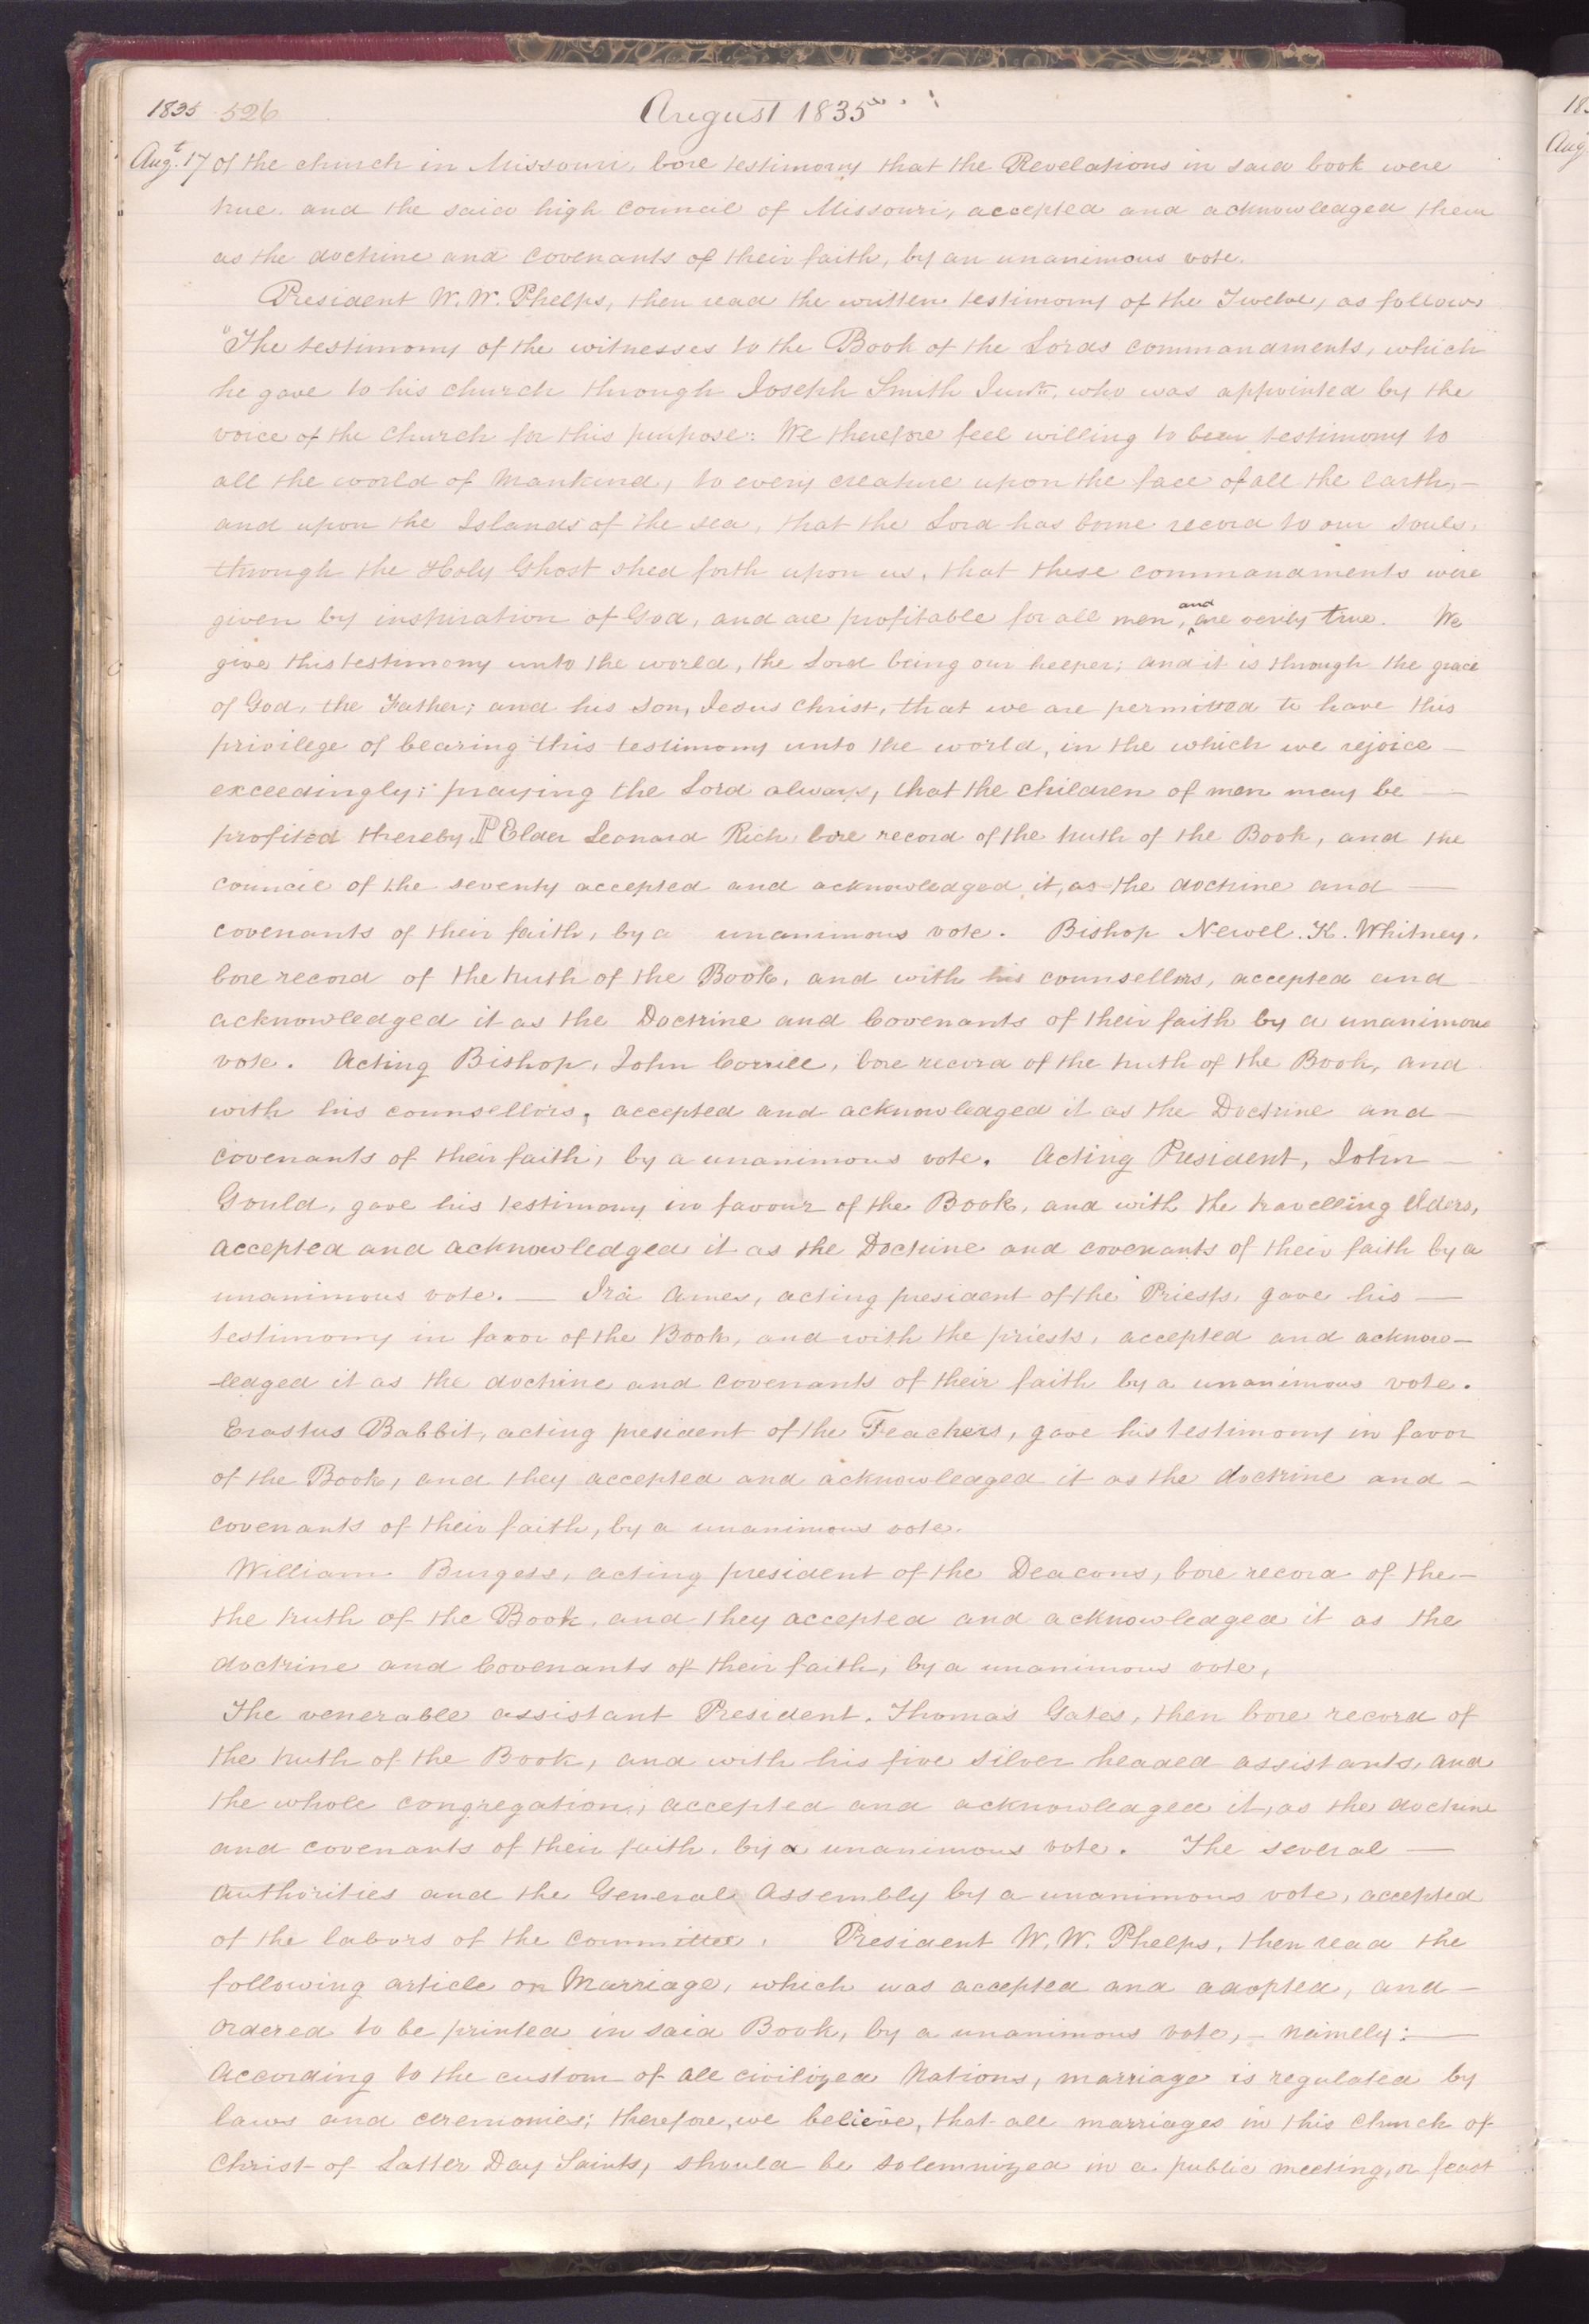 1835 526 August 1835
Augt. 17 of the church in Missouri, bore testimony that the Revelations in said book were
true. and the said high council of Missouri, accepted and acknowledged them
as the doctrine and covenants of their faith, by an unanimous vote.
President W. W. Phelps, then read the written testimony of the Twelve, as follows
"The testimony of the witnesses to the Book of the Lords commandments, which
he gave to his church through Joseph Smith Junr. who was appointed by the
voice of the church for this purpose: We therefore feel willing to bear testimony to
all the world of mankind, to every creature upon the face of all the earth,—
and upon the Islands of the sea, that the Lord has borne record to our souls,
through the Holy Ghost shed forth upon us, that these commandments were
given by inspiration of God, and are profitable for all men, and are verily true. We
give this testimony unto the world, the Lord being our helper; and it is through the grace
of God, the Father; and his son, Jesus Christ, that we are permitted to have this
privilege of bearing this testimony unto the world, in the which we rejoice —
exceedingly; praying the Lord always, that the children of men may be —
profited thereby. P Elder Leonard Rich, bore record of the truth of the Book, and the
council of the seventy accepted and acknowledged it, as the doctrine and —
covenants of their faith, by a unanimous vote. Bishop Newel. K. Whitney.
bore record of the truth of the Book, and with his counsellors, accepted and
acknowledged it as the Doctrine and Covenants of their faith by a unanimous
vote. Acting Bishop, John Corrill, bore record of the truth of the Book, and
with his counsellors, accepted and acknowledged it as the Doctrine and —
covenants of their faith, by a unanimous vote. Acting President, John —
Gould, gave his testimony in favour of the Book, and with the travelling Elders,
accepted and acknowledged it as the Doctrine and covenants of their faith by a
unanimous vote. — Ira Ames, acting president of the Priests, gave his —
testimony in favor of the Book, and with the priests, accepted and acknow-
-ledged it as the doctrine and covenants of their faith by a unanimous vote.
Erastus Babbit, acting president of the Teachers, gave his testimony in favor
of the Book, and they accepted and acknowledged it as the doctrine and —
covenants of their faith, by a unanimous vote.
William Burgess, acting president of the Deacons, bore record of the —
the truth of the Book, and they accepted and acknowledged it as the
doctrine and Covenants of their faith, by a unanimous vote,
The venerable assistant President. Thomas Gates, then bore record of
the truth of the Book, and with his five silver headed assistants, and
the whole congregation, accepted and acknowledged it, as the doctrine
and covenants of their faith, by a unanimous vote. The several —
authorities and the General Assembly by a unanimous vote, accepted
of the labors of the committee. President W. W. Phelps, then read the
following article on Marriage, which was accepted and adopted, and —
ordered to be printed in said Book, by a unanimous vote, — namely: —
According to the custom of all civilized Nations, marriage is regulated by
laws and ceremonies; therefore, we believe, that all marriages in this Church of
Christ of Latter Day Saints, should be solemnized in a public meeting, or feast
183
Aug